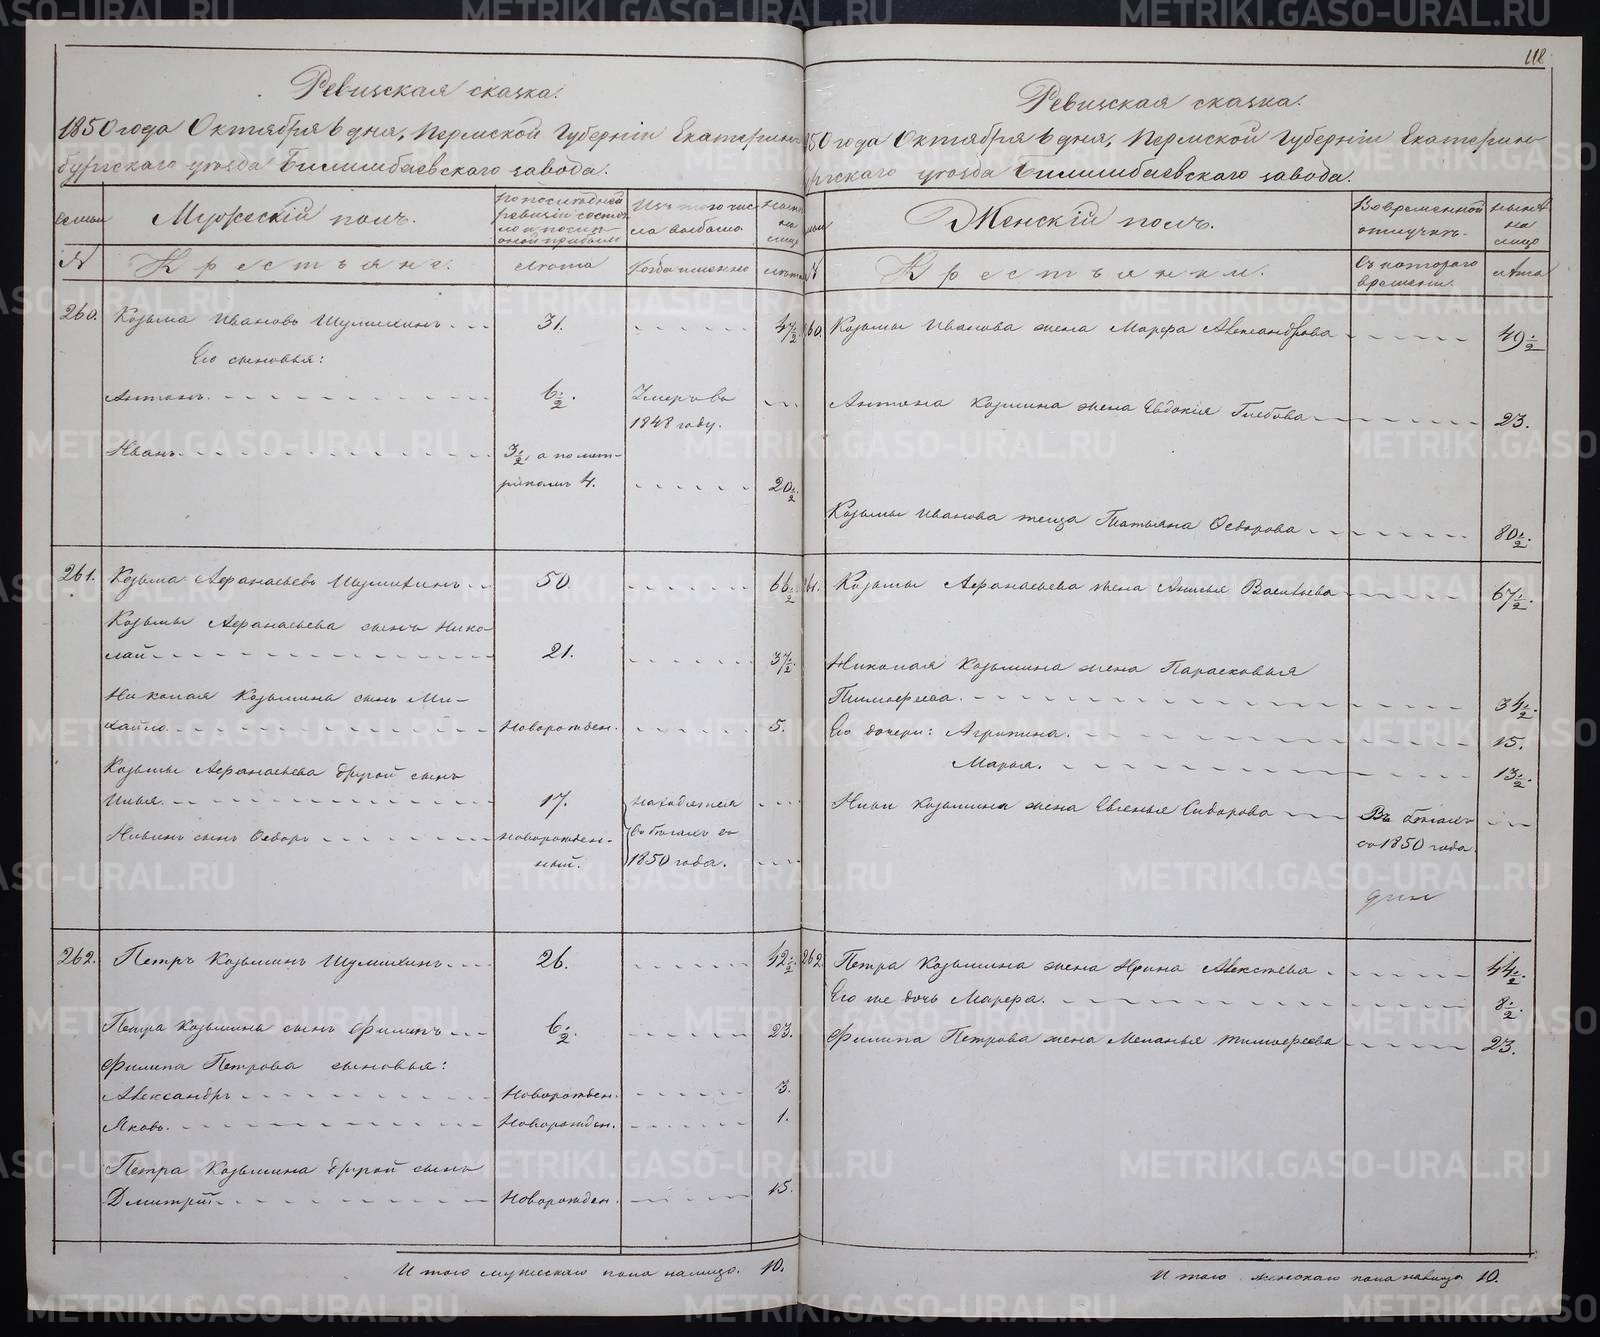 Ревизская сказка.
1850 года Октября 6 дня, Пермской Губерніи Екатерин-
бургскаго уезда Билимбаевскаго завода.
семьи
Мужескій полъ.
По последней
ревизіи состо-
яло и после
оной прибыло
Изъ того чис-
ла выбыло
Ныне
на
лицо
№
Крестьяне.
лета
Когда именно
лета
260.
Козьма Ивановъ Шумихинъ
31.
47 1/2
Его сыновья:
Антонъ.
6 1/2.
Умеръ въ
1848 году.
Иванъ
3 1/2, а по мет-
рикамъ 4.
20 1/2
261.
Козьма Афанасьевъ Шумихинъ
50.
66 1/2
Козьмы Афанасьева сынъ Нико-
лай
21.
37 1/2.
Николая Козьмина сынъ Ми-
хайло
Новорожден.
5.
Козьмы Афанасьева другой сынъ
Илья.
17.
находятся
Ильинъ сынъ Федоръ
новорожден-
ный.
въ бегахъ съ
1850 года.
262.
Петръ Козьминъ Шумихинъ
26.
42 1/2.
Петра Козьмина сынъ Филипъ
6 1/2
23.
Филипа Петрова сыновья:
Александръ
Новорожден.
3.
Яковъ.
Новорожден.
1.
Петра Козьмина другой сынъ
Дмитрій
Новорожден.
15.
Итого мужескаго пола налицо. 10.
118
Ревизская сказка.
850 года Октября 6 дня, Пермской Губерніи Екатерин-
ургскаго уезда Билимбаевскаго завода.
Женскій полъ.
Во временной
отлучке.
Ныне
на
лицо
№
Крестьянки.
Съ котораго
времени.
лета
60.
Козьмы Иванова жена Марфа Александрова
49 1/2
Антона Козмина жена Евдокія Глебова
23.
Козьмы Иванова теща Татьяна Федорова
80 1/2.
61.
Козьмы Афанасьева жена Анисья Васильева
67 1/2.
Николая Козьмина жена Парасковья
Тимофеева.
34 1/2.
Его дочери: Агрипина.
15.
Марья.
13 1/2.
Ильи Козьмина жена Евгенья Сидорова
Въ бегахъ
съ 1850 года.
262
Петра Козьмина жена Ирина Алексеева
44 1/2.
Его же дочь Марфа.
8 1/2.
Филипа Петрова жена Меланья Тимофеева
23.
Итого женскаго пола налицо 10.
METRIKI.GASO-URAL.RU